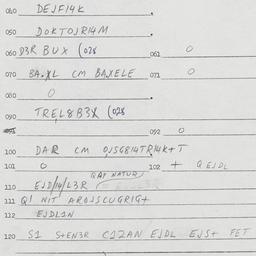 040 DEJFI4K
050 DOKTOJRI4M
060 D3R BUX (028 061 O
070 BA.XL CM BAXELE 071 O
080 O
090 TREL8B3X (028
092 O
100 DAR CM OJSGBI4TRI4K+T
101 O 102 + QEJDL
QAY NATUR
110 EJD/14/L3R
111 Q! NIT AROJSCUGRIG+
112 EJDL1N
120 S1 S+EN3R C12AN EJDL EJS+ FET